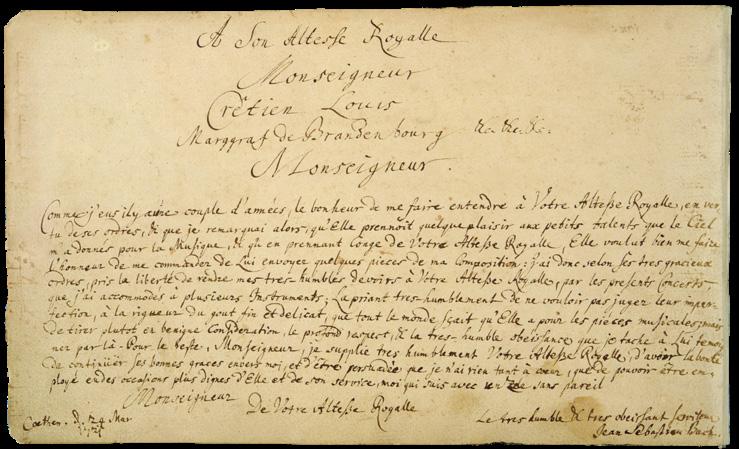 A Son Altesse Royalle
Monseigneur
Crêtien Louis
Marggraf de Brandenbourg &c. &c. &c.
Monseigneur.
Comme j'eus il y a une couple d'années, le bonheur de me faire entendre à Votre Altesse Royalle, en ver-
tu de ses ordres, & que je remarquai alors, qu'Elle prennoit quelque plaisir aux petits talents que le Ciel
m'a donnés pour la Musique, & qu'en prennant Conge de Votre Altesse Royalle, Elle voulut bien me faire
l'honneur de me commander de Lui envoyer quelques pieces de ma Composition: j'ai donc selon ses tres gracieux
ordres, pris la liberté de rendre mes tres-humbles devoirs à Votre Altesse Royalle, par les presents Concerts,
que j'ai accommodés à plusieurs Instruments; La priant tres-humblement de ne vouloir pas juger leur imper-
fection, à la rigueur du gout fin et delicat, que tout le monde sçait qu'Elle a pour les piéces musicales; mais
de tirer plutot en benigne Consideration, le profond respect, & la tres-humble obeissance que je tache à Lui temoi-
ner par là. Pour le reste, Monseigneur, je supplie tres humblement Votre Altesse Royalle, d'avoir la bonté
de continüer ses bonnes graces envers moi, et d'être persuadée que je n'ai rien tant à cœur, que de pouvoir être em-
ployé en des occasions plus dignes d'Elle et de son service, moi qui suis avec un zele sans pareil
Monseigneur
De Votre Altesse Royalle
Coethen. d. 24 Mar
1721
Le tres humble & tres obeissant serviteur
Jean Sebastien Bach.